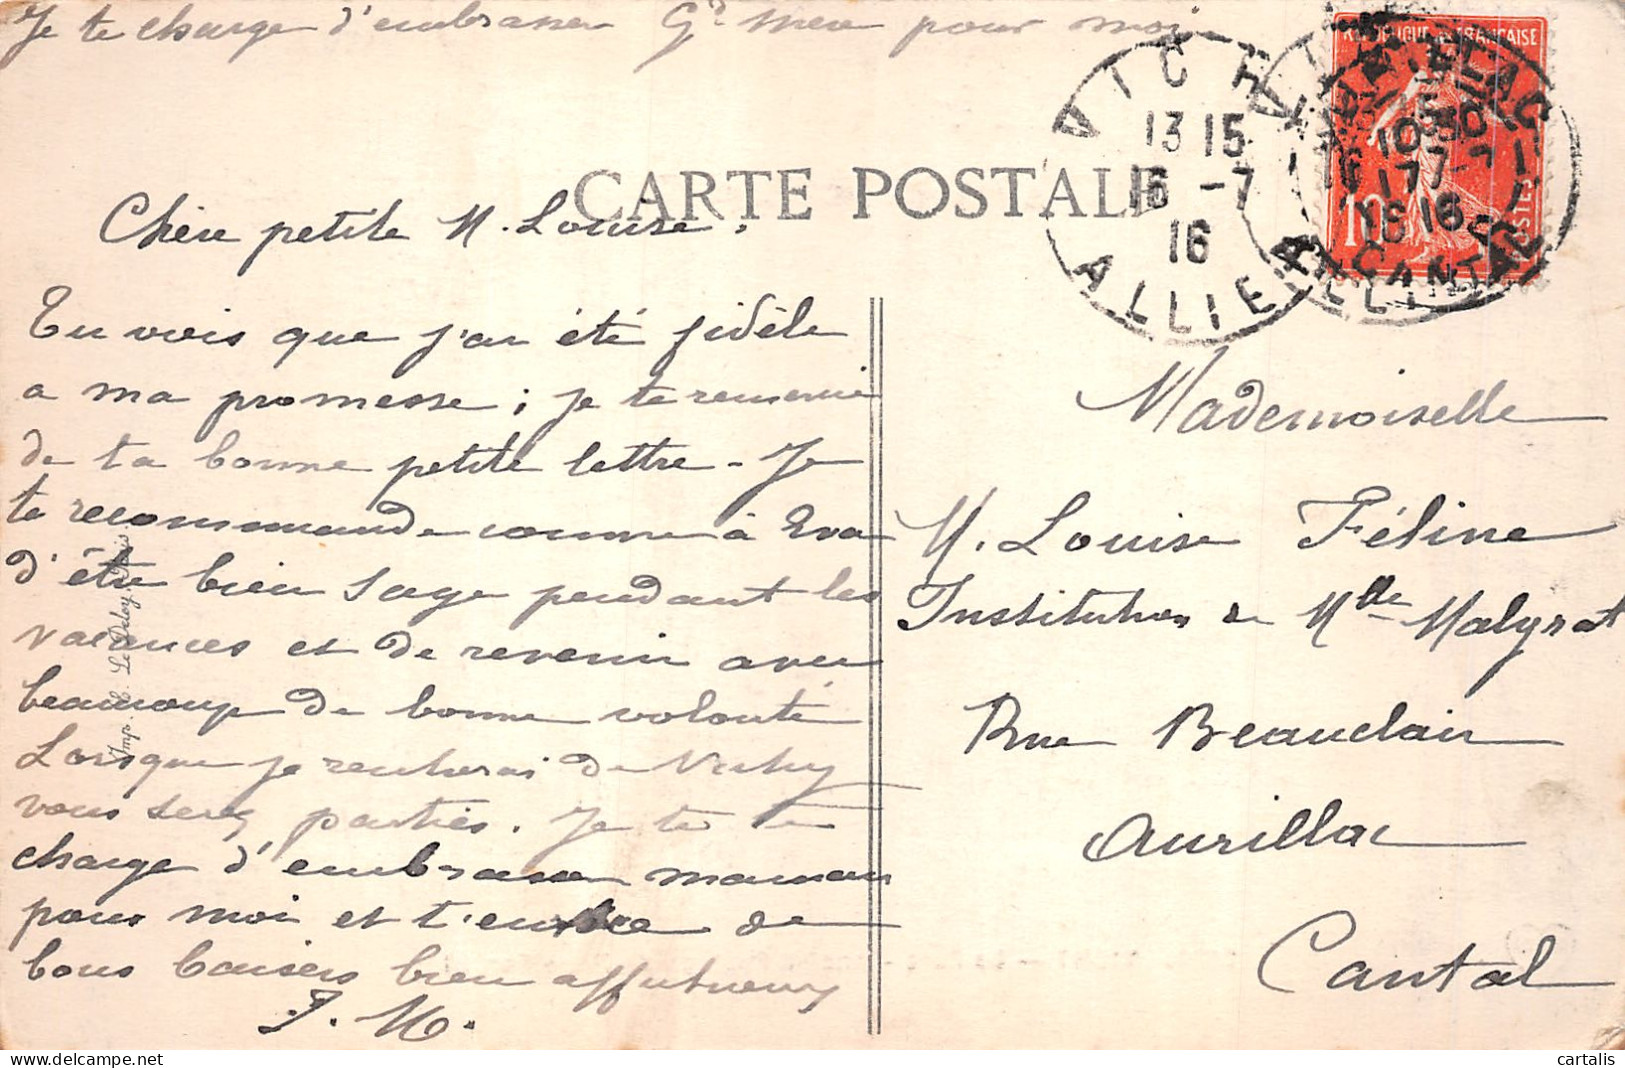 Je te charge d'embrasser Gd mère pour moi
CARTE POSTALE
VICHY
13 15
16 -7
16
ALLIER
REPUBLIQUE FRANÇAISE
10
POSTES
AURILLAC
10 30
17 -7
16
CANTAL
Chère petite M. Louise,
Tu vois que j'ai été fidèle
a ma promesse ; je te remercie
de ta bonne petite lettre - Je
te recommande comme à Eva
d'être bien sage pendant les
vacances et de revenir avec
beaucoup de bonne volonté
Lorsque je rentrerai de Vichy
vous serez parties. Je te
charge d'embrasser maman
pour moi et t'envoie de
bons baisers bien affectueux
J. M.
Mademoiselle
M. Louise Féline
Institution de Mlle Malgrat
Rue Beauclair
Aurillac
Cantal
Imp. E. Le Deley, Paris
cartalis